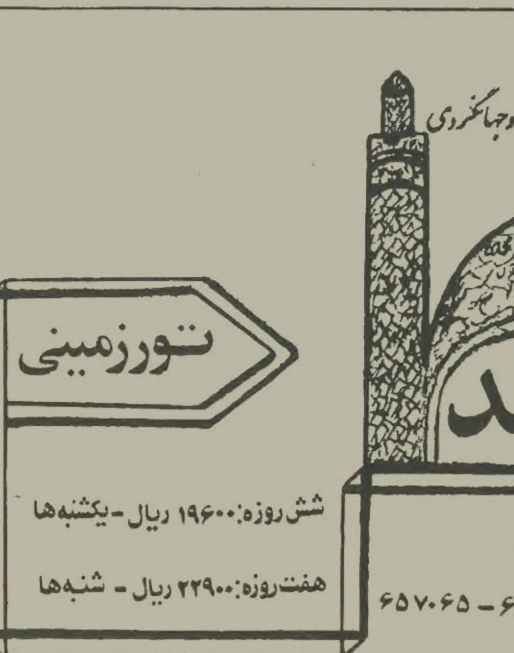 وجهانگردی
تور زمینی
شش روزه: ۱۹۶۰۰ ریال - یکشنبه‌ها
هفت روزه: ۲۲۹۰۰ ریال - شنبه‌ها
۶۵۷۰۶۵ - ۶